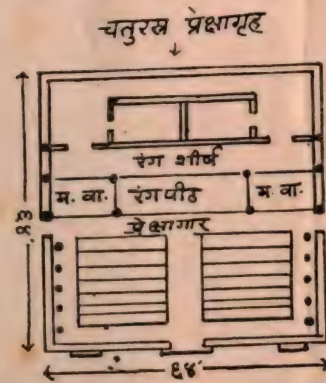 चतुरस्र प्रेक्षागृह
रंग शीर्ष
म. वा. रंगपीठ म. वा.
प्रेक्षागार
६४'